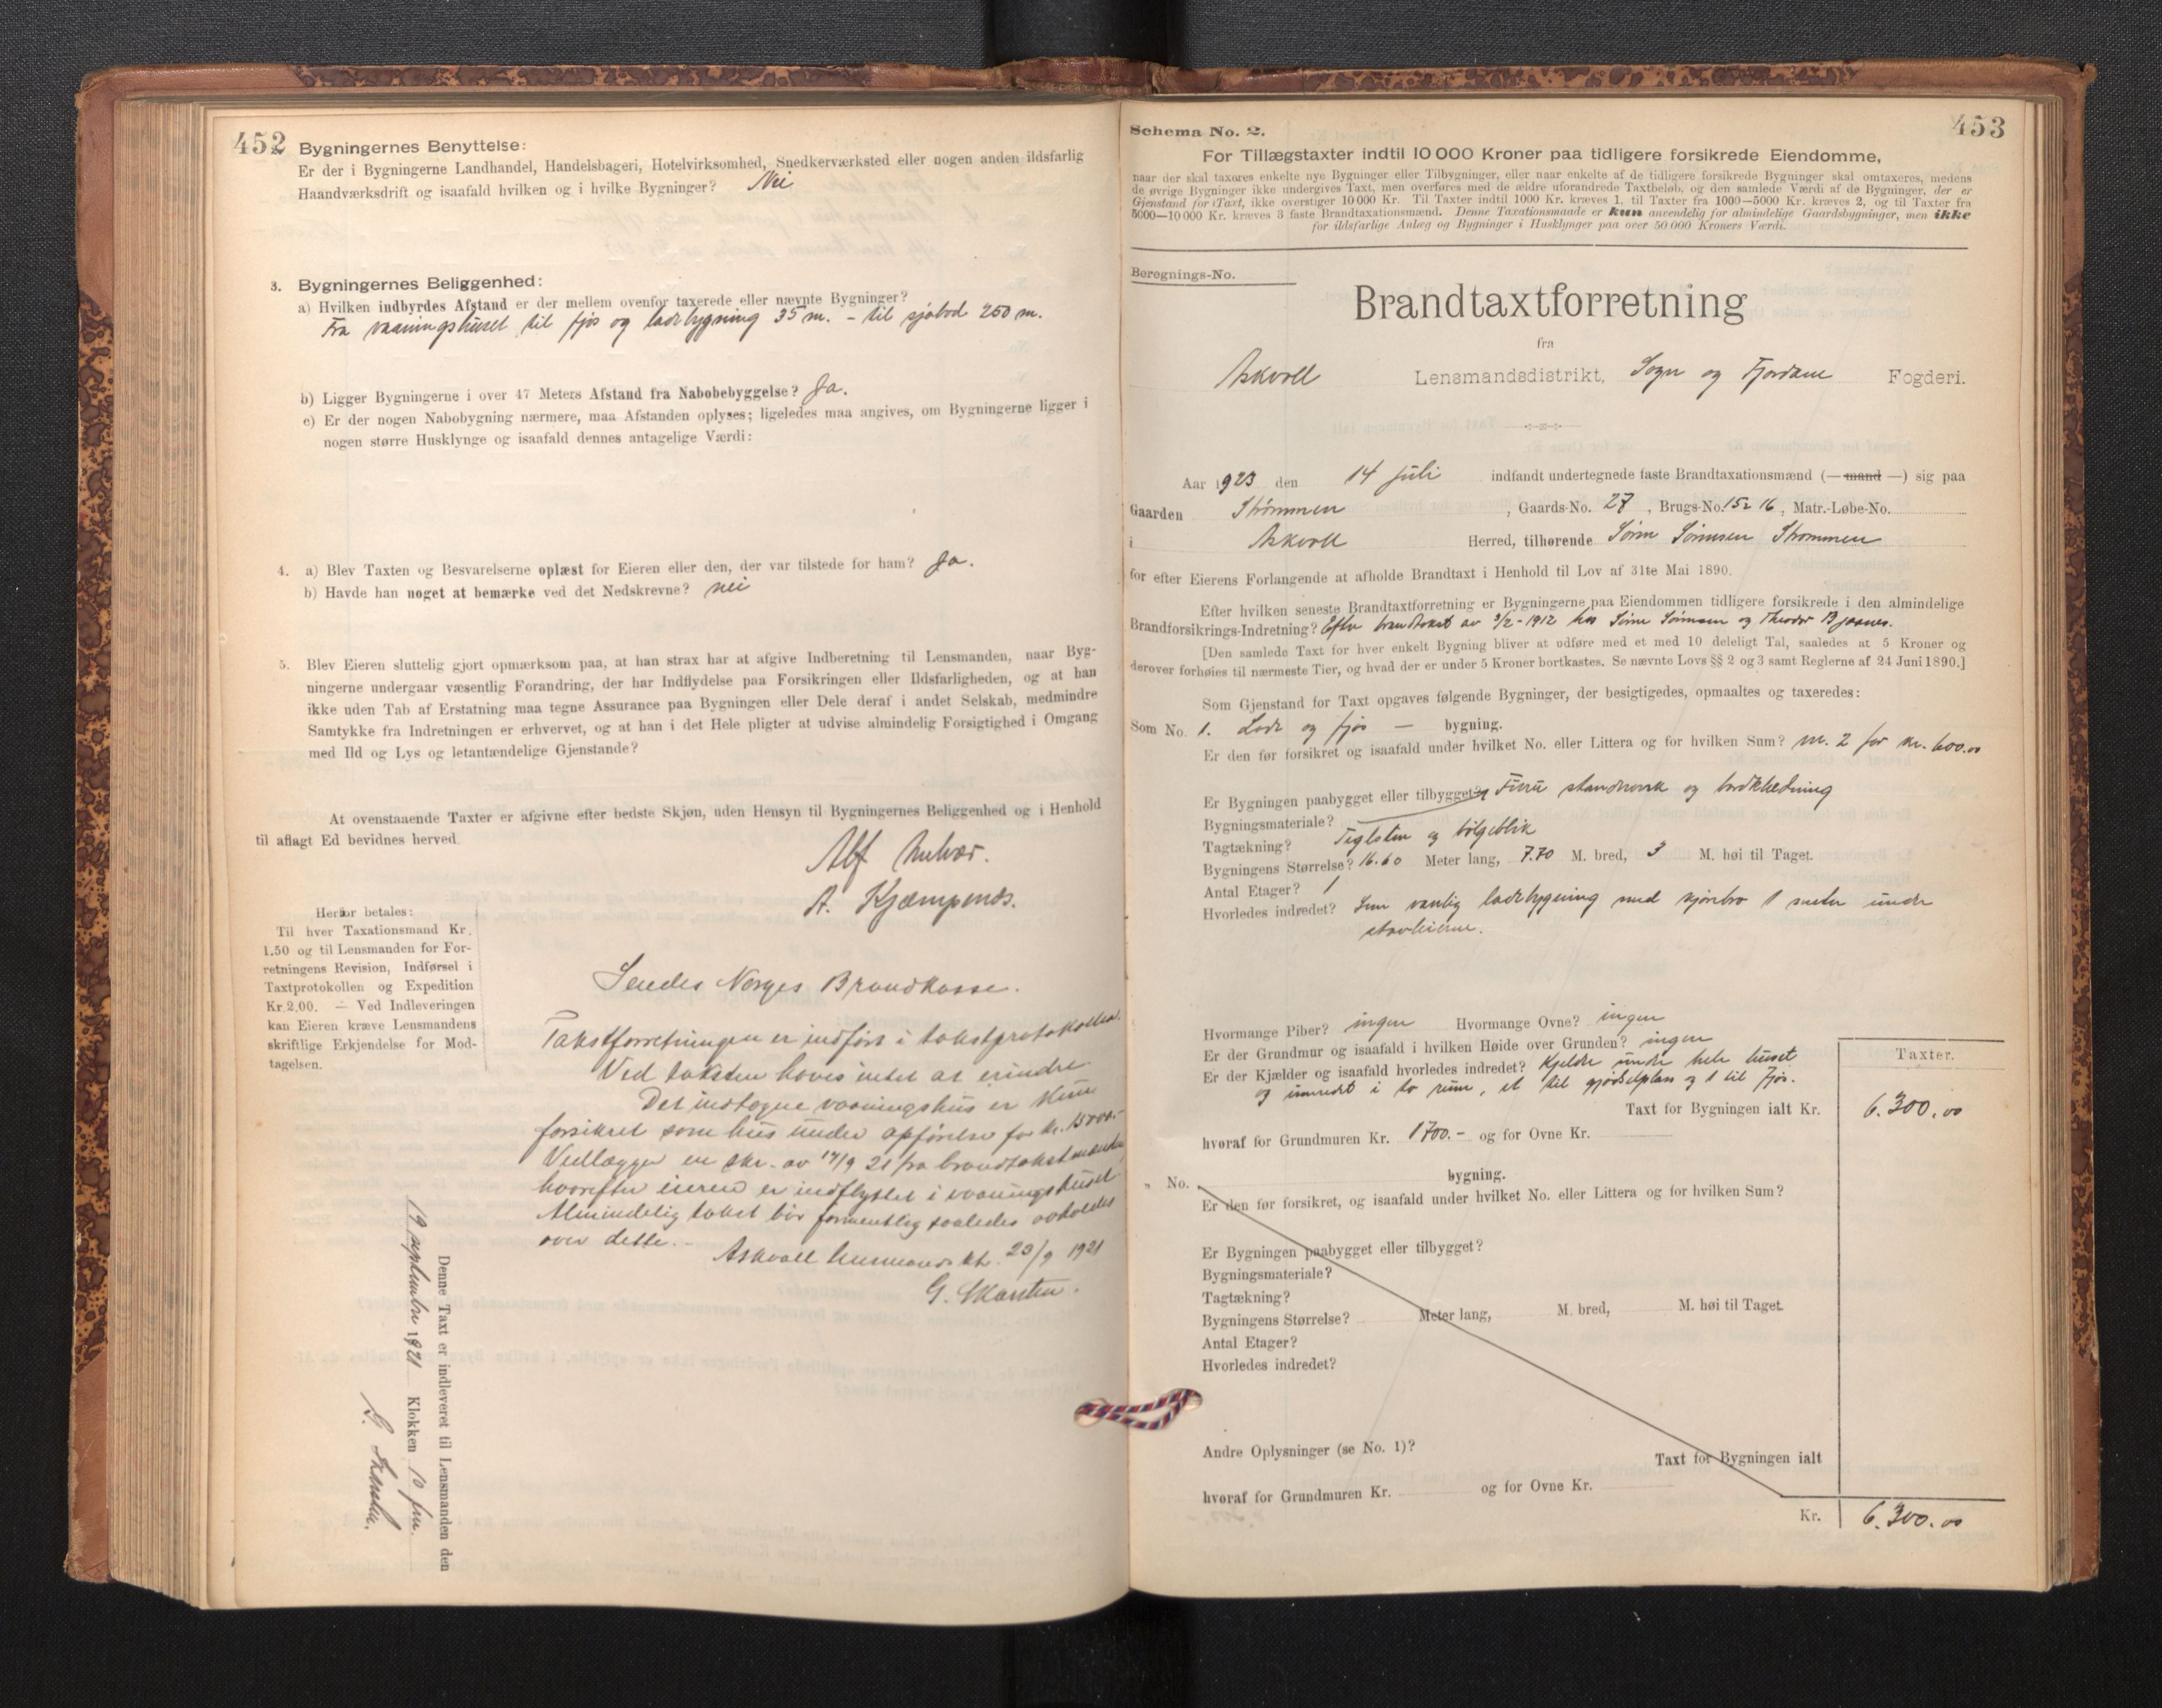 452
Bygningernes Benyttelse:
Er der i Bygningerne Landhandel, Handelsbageri, Hotelvirksomhed, Snedkerværksted eller nogen anden ildsfarlig
Haandværksdrift og isaafald hvilken og i hvilke Bygninger? Nei
3. Bygningernes Beliggenhed:
a) Hvilken indbyrdes Afstand er der mellem ovenfor taxerede eller nævnte Bygninger?
Fra vaaningshuset til fjøs og ladebygning 35 m. - til sjøbod 250 m.
b) Ligger Bygningerne i over 47 Meters Afstand fra Nabobebyggelse? Ja.
c) Er der nogen Nabobygning nærmere, maa Afstanden oplyses; ligeledes maa angives, om Bygningerne ligger i
nogen større Husklynge og isaafald dennes antagelige Værdi:
4. a) Blev Taxten og Besvarelserne oplæst for Eieren eller den, der var tilstede for ham? Ja.
b) Havde han noget at bemærke ved det Nedskrevne? nei
5. Blev Eieren sluttelig gjort opmærksom paa, at han strax har at afgive Indberetning til Lensmanden, naar Byg-
ningerne undergaar væsentlig Forandring, der har Indflydelse paa Forsikringen eller Ildsfarligheden, og at han
ikke uden Tab af Erstatning maa tegne Assurance paa Bygningen eller Dele deraf i andet Selskab, medmindre
Samtykke fra Indretningen er erhvervet, og at han i det Hele pligter at udvise almindelig Forsigtighed i Omgang
med Ild og Lys og letantændelige Gjenstande?
At ovenstaaende Taxter er afgivne efter bedste Skjøn, uden Hensyn til Bygningernes Beliggenhed og i Henhold
til aflagt Ed bevidnes herved.
Alf
A. Kjempenes.
Herfor betales:
Til hver Taxationsmand Kr.
1.50 og til Lensmanden for For-
retningens Revision, Indførsel i
Taxtprotokollen og Expedition
Kr. 2.00. — Ved Indleveringen
kan Eieren kræve Lensmandens
skriftlige Erkjendelse for Mod-
tagelsen.
Sendes Norges Brandkasse.
Takstforretningen er indført i takstprotokollen.
Ved taksten haves intet at erindre
Det indtagne vaaningshus er kun
forsikret som hus under opførelse for kr. 15000.-
Vedlægger en skr. av 17/9 21 fra brandtakstmændene
hvorefter eieren er indflyttet i vaaningshuset
Almindelig takst bør formentlig saaledes avholdes
over dette.-
Askvoll lensmandsktr. 23/9 1921
G. Skarsten.
Denne Taxt er indleveret til Lensmanden den
19 september 1921 Klokken 10 fm.
G. Skarsten.
453
Schema No. 2.
For Tillægstaxter indtil 10 000 Kroner paa tidligere forsikrede Eiendomme,
naar der skal taxeres enkelte nye Bygninger eller Tilbygninger, eller naar enkelte af de tidligere forsikrede Bygninger skal omtaxeres, medens
de øvrige Bygninger ikke undergives Taxt, men overføres med de ældre uforandrede Taxtbeløb, og den samlede Værdi af de Bygninger, der er
Gjenstand for Taxt, ikke overstiger 10 000 Kr. Til Taxter indtil 1000 Kr. kræves 1, til Taxter fra 1000—5000 Kr. kræves 2, og til Taxter fra
5000—10 000 Kr. kræves 3 faste Brandtaxationsmænd. Denne Taxationsmaade er kun anvendelig for almindelige Gaardsbygninger, men ikke
for ildsfarlige Anlæg og Bygninger i Husklynger paa over 50 000 Kroners Værdi.
Beregnings-No.
Brandtaxtforretning
fra
Askvoll Lensmandsdistrikt, Sogn og Fjordane Fogderi.
Aar 1923 den 14 juli indfandt undertegnede faste Brandtaxationsmænd (— mand —) sig paa
Gaarden Strømmen, Gaards-No. 27, Brugs-No. 15 & 16, Matr.-Løbe-No.
i Askvoll Herred, tilhørende Sørin Sørinsen Strømmen
for efter Eierens Forlangende at afholde Brandtaxt i Henhold til Lov af 31te Mai 1890.
Efter hvilken seneste Brandtaxtforretning er Bygningerne paa Eiendommen tidligere forsikrede i den almindelige
Brandforsikrings-Indretning? Efter brandtakst av 3/2-1912 hos Sørin Sørinsen og Theodor Bjaanes.
[Den samlede Taxt for hver enkelt Bygning bliver at udføre med et med 10 deleligt Tal, saaledes at 5 Kroner og
derover forhøies til nærmeste Tier, og hvad der er under 5 Kroner bortkastes. Se nævnte Lovs §§ 2 og 3 samt Reglerne af 24 Juni 1890.]
Som Gjenstand for Taxt opgaves følgende Bygninger, der besigtigedes, opmaaltes og taxeredes:
Som No. 1. Lade og fjøs — bygning.
Er den før forsikret og isaafald under hvilket No. eller Littera og for hvilken Sum? nr. 2 for kr. 600.00
Er Bygningen paabygget eller tilbygget?
Bygningsmateriale? Furu standverk og bordklædning
Tagtækning? Teglsten og bølgeblik
Bygningens Størrelse? 16.60 Meter lang, 7.70 M. bred, 3 M. høi til Taget.
Antal Etager? 1
Hvorledes indredet? Som vanlig ladebygning med kjørebro 1 meter under
stavleierne.
Hvormange Piber? ingen Hvormange Ovne? ingen
Er der Grundmur og isaafald i hvilken Høide over Grunden? ingen
Er der Kjælder og isaafald hvorledes indredet? Kjelder under hele huset
og innredt i to rum, et til gjødselplass og 1 til fjøs.
Taxter.
Taxt for Bygningen ialt Kr. 6.300.00
hvoraf for Grundmuren Kr. 1700.- og for Ovne Kr.
" No. bygning.
Er den før forsikret, og isaafald under hvilket No. eller Littera og for hvilken Sum?
Er Bygningen paabygget eller tilbygget?
Bygningsmateriale?
Tagtækning?
Bygningens Størrelse? Meter lang, M. bred, M. høi til Taget.
Antal Etager?
Hvorledes indredet?
Andre Oplysninger (se No. 1)?
Taxt for Bygningen ialt
hvoraf for Grundmuren Kr. og for Ovne Kr.
Kr. 6.300.00